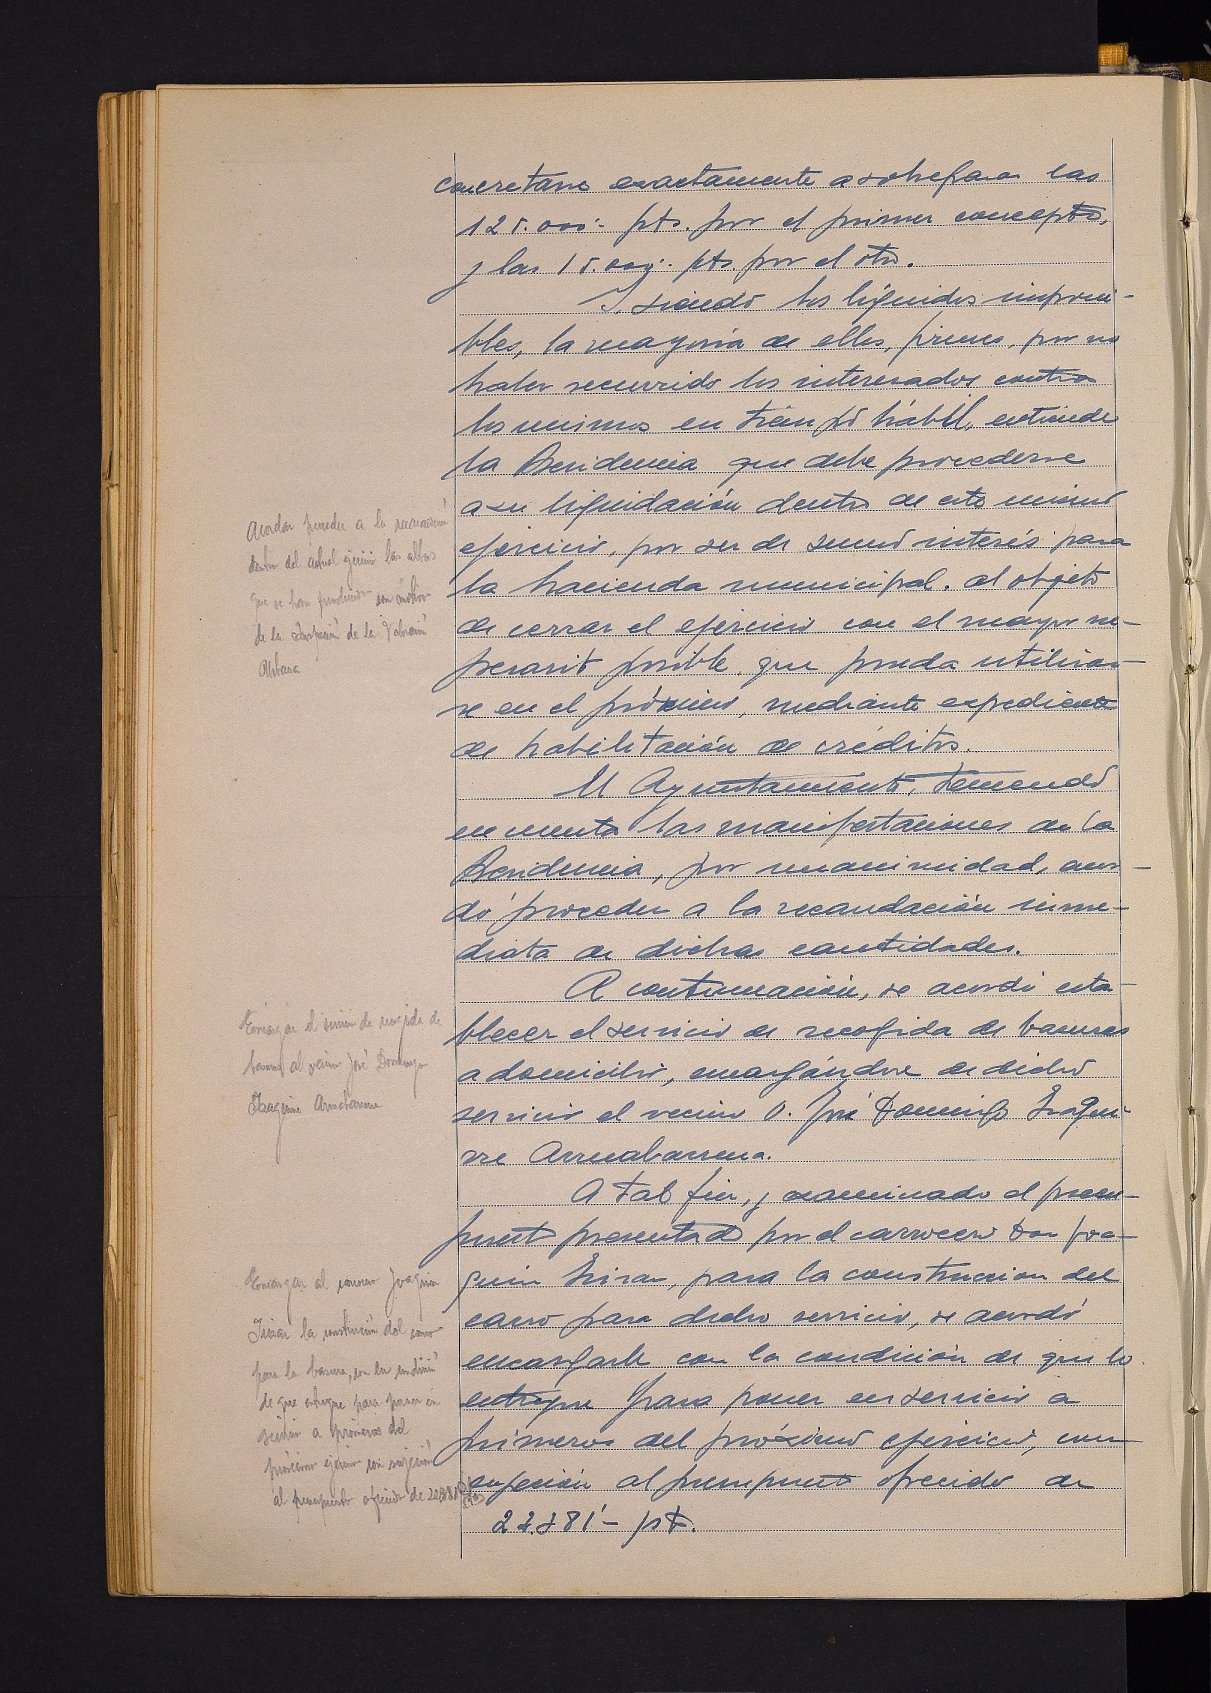 concretarse exactamente a sobrepasar las
125.000'- pts. por el primer concepto,
y las 15.000'- pts. por el otro.
Y siendo los líquidos imponi-
bles, la mayoría de ellos, firmes, por no
haber recurrido los interesados contra
los mismos en tiempo hábil, entiende
la Presidencia que debe procederse
a su liquidación dentro de este mismo
ejercicio, por ser de sumo interés para
la hacienda municipal, al objeto
de cerrar el ejercicio con el mayor su-
perávit posible, que pueda utilizar-
se en el próximo, mediante expediente
de habilitación de créditos.
El Ayuntamiento, teniendo
en cuenta las manifestaciones de la
Presidencia, por unanimidad, acor-
dó proceder a la recaudación inme-
diata de dichas cantidades.
A continuación, se acordó esta-
blecer el servicio de recogida de basuras
a domicilio, encargándose de dicho
servicio el vecino D. José Domingo Izagui-
rre Arruabarrena.
A tal fin, y examinado el presu-
puesto presentado por el carrocero Don Joa-
quin Irizar, para la construccion del
carro para dicho servicio, se acordó
encargarle con la condición de que lo
entregue para poner en servicio a
primeros del próximo ejercicio, con
sujeción al presupuesto ofrecido de
22.881'- pts.
Acordar proceder a la recaudación
dentro del actual ejercicio las altas
que se han producido con motivo
de la de la Valoración
Urbana
Encargar el servicio de recogida de
basuras al vecino José Domingo
Izaguirre Arruabarrena
Encargar al carrocero Joaquin
Irizar la construcción del carro
para la basura, con la condición
de que entregue para poner en
servicio a primeros del
próximo ejercicio con sujeción
al presupuesto ofrecido de 22.881